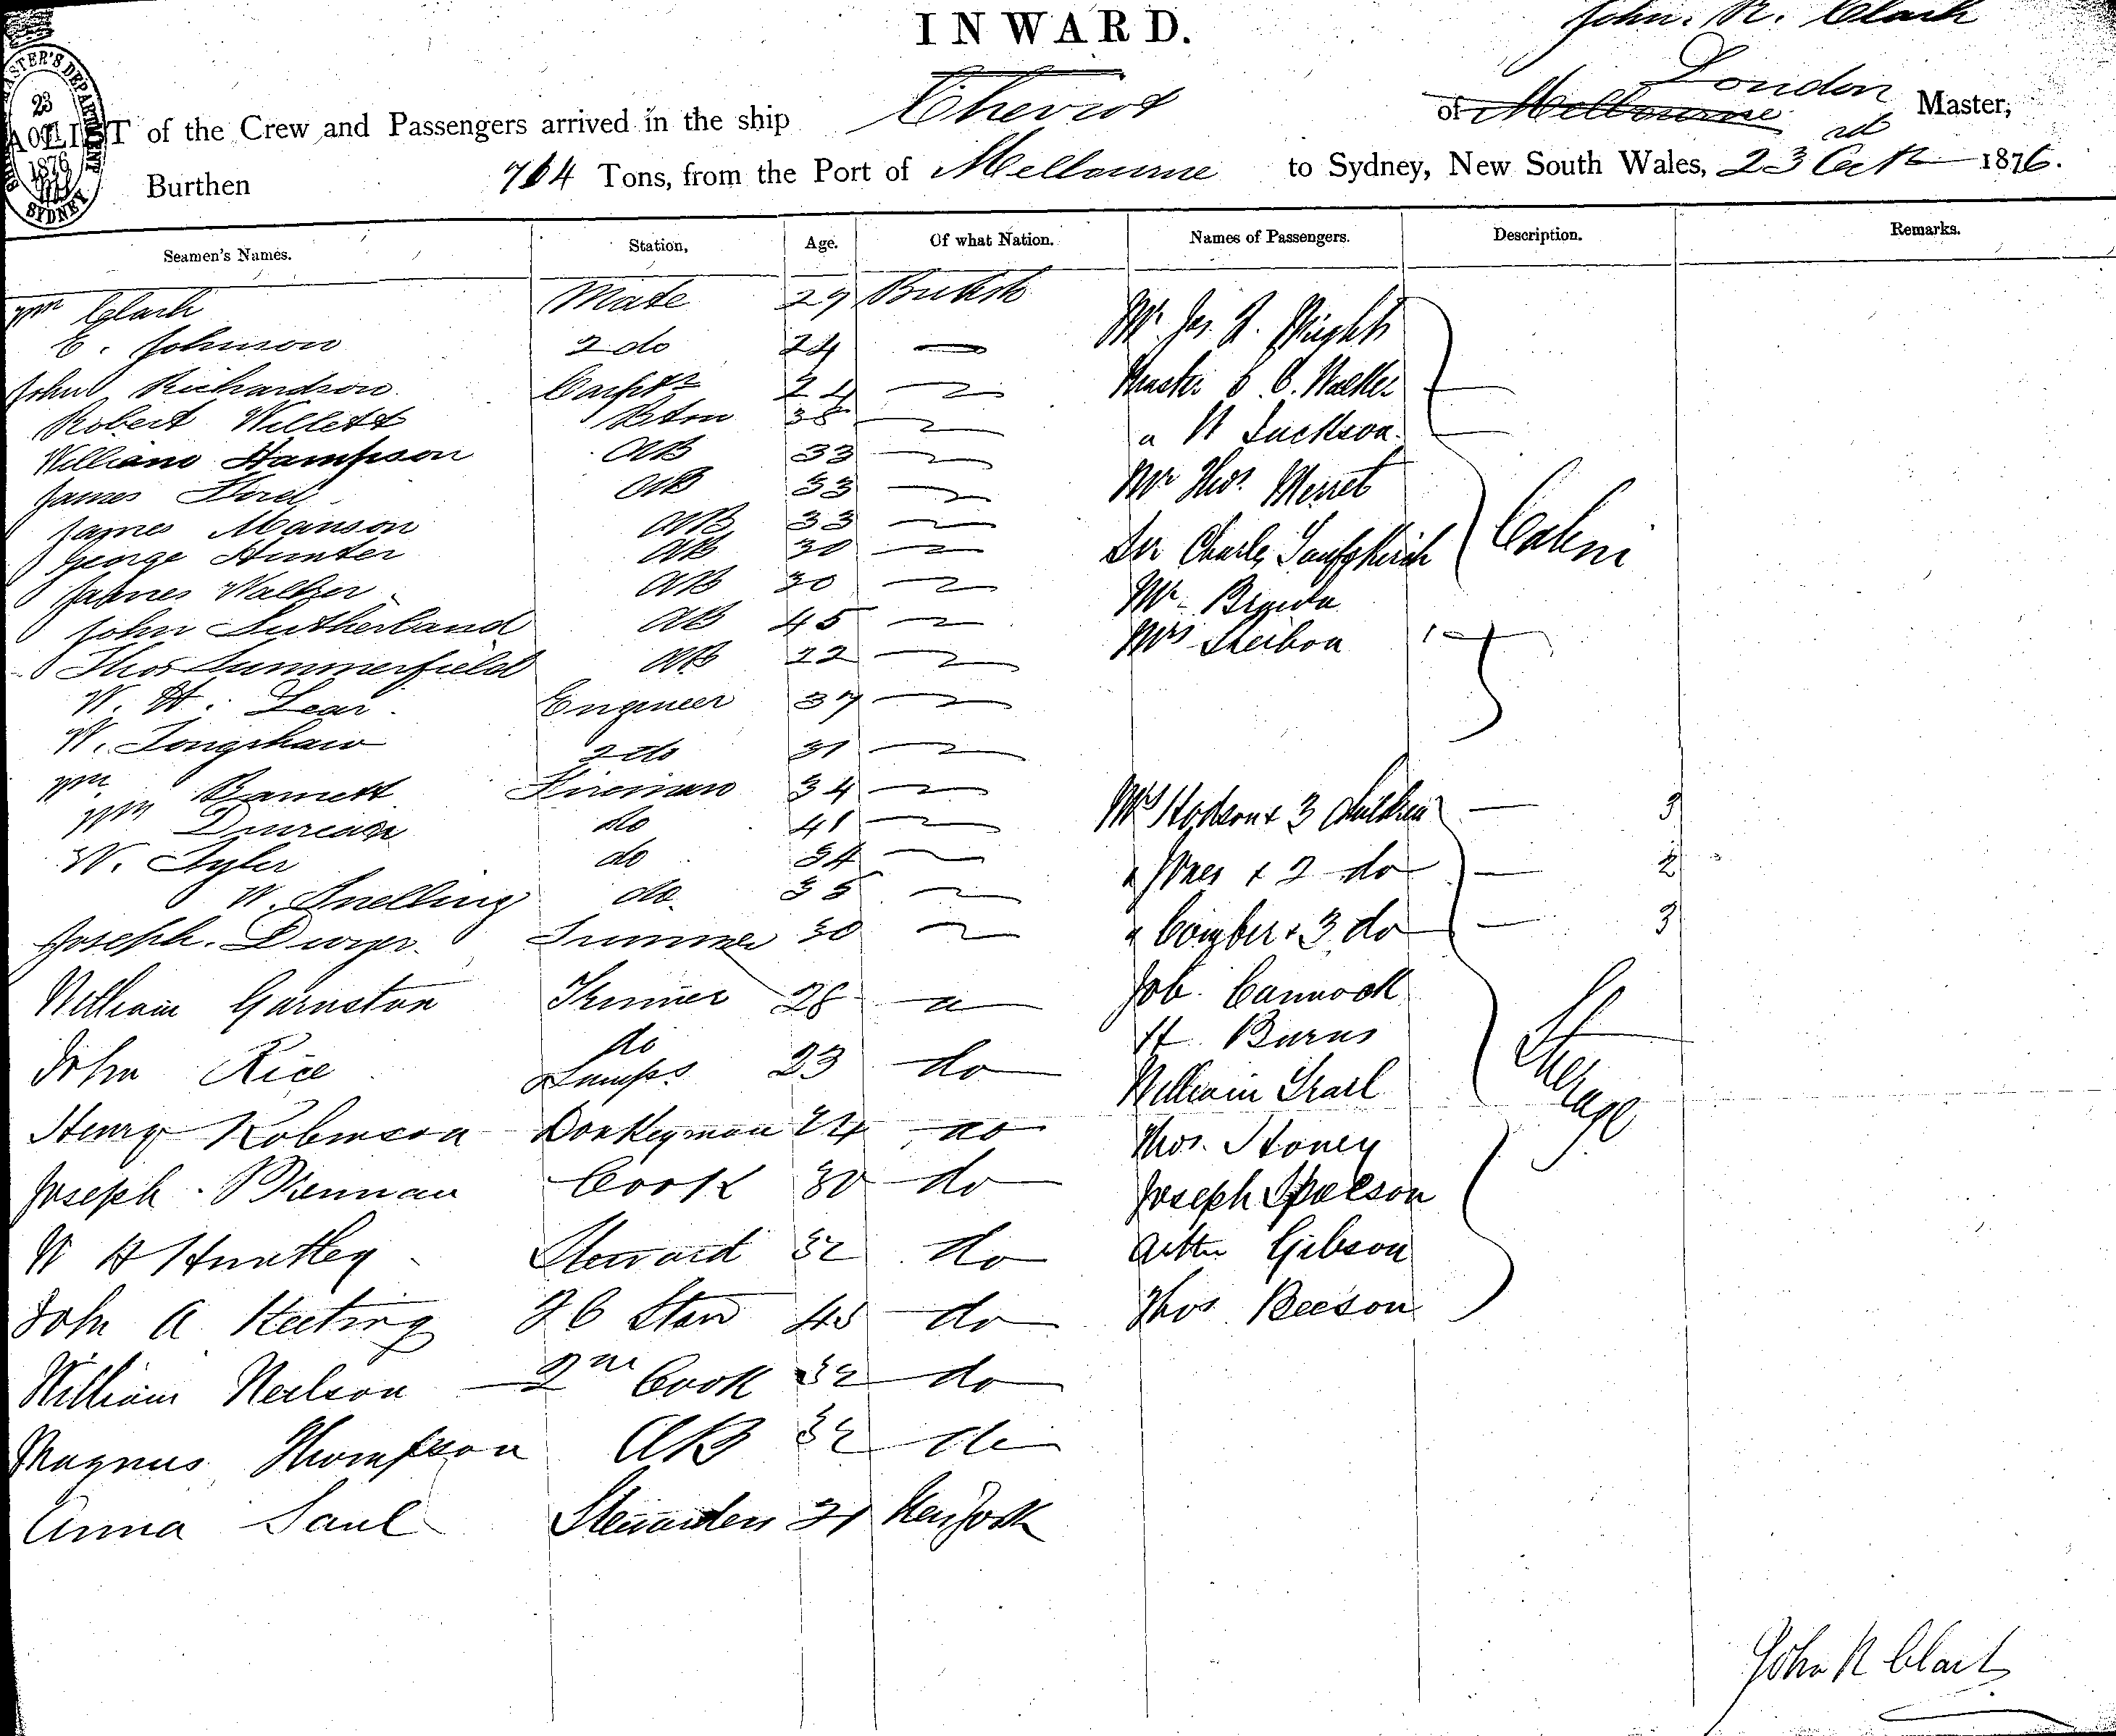 INWARD.
John. R. Clark
London
LIST of the Crew and Passengers arrived in the ship Cheviot of Melbourne Master,
Burthen 764 Tons, from the Port of Melbourne to Sydney, New South Wales, 23rd Oct 1876.
23
1876
SYDNEY
Seamen's Names. Station, Age. Of what Nation. Names of Passengers. Description. Remarks.
Wm Clark Mate 29 British
E. Johnson 2 do 24
John Richardson Carptr 24
Robert Willett Bstn 38
William Hampson AB 33
James AB 33
James Manson AB 33
George Hunter AB 30
James Walker AB 30
John Sutherland AB 45
Thos Summerfield AB 22
W. H. Lear Engineer 37
W. Longshaw 2 do 31
Wm Barnett Fireman 34
Wm Duncan do 41
W. Tyler do 34
W. Snelling do 35
Joseph. Dwyer Trimmer 30
William Garnston Trimer 28 "
John Rice do & Lamps 23 do
Henry Robinson Donkeyman 24 do
Joseph Brennan Cook 30 do
W H Huntley Steward 32 do
John A Keeting F C Stew 45 do
William Neilson 2nd Cook 32 do
Magnus Thompson AB 32 do
Anna Saul Stewardess 21 New York
Mr Jas. A. Wright
Master C. Walker
" W Jackson
Mr Thos. Merret
Sir Charles
Mr
Mrs
Cabin
Mrs Hodson & 3 Children 3
" Jones & 2 do 2
" Comber & 3 do 3
Job. Cannock
H. Burns
William Searl
Thos. Stoney
Joseph
Arthur Gibson
Thos Beeson
Steerage
John R Clark